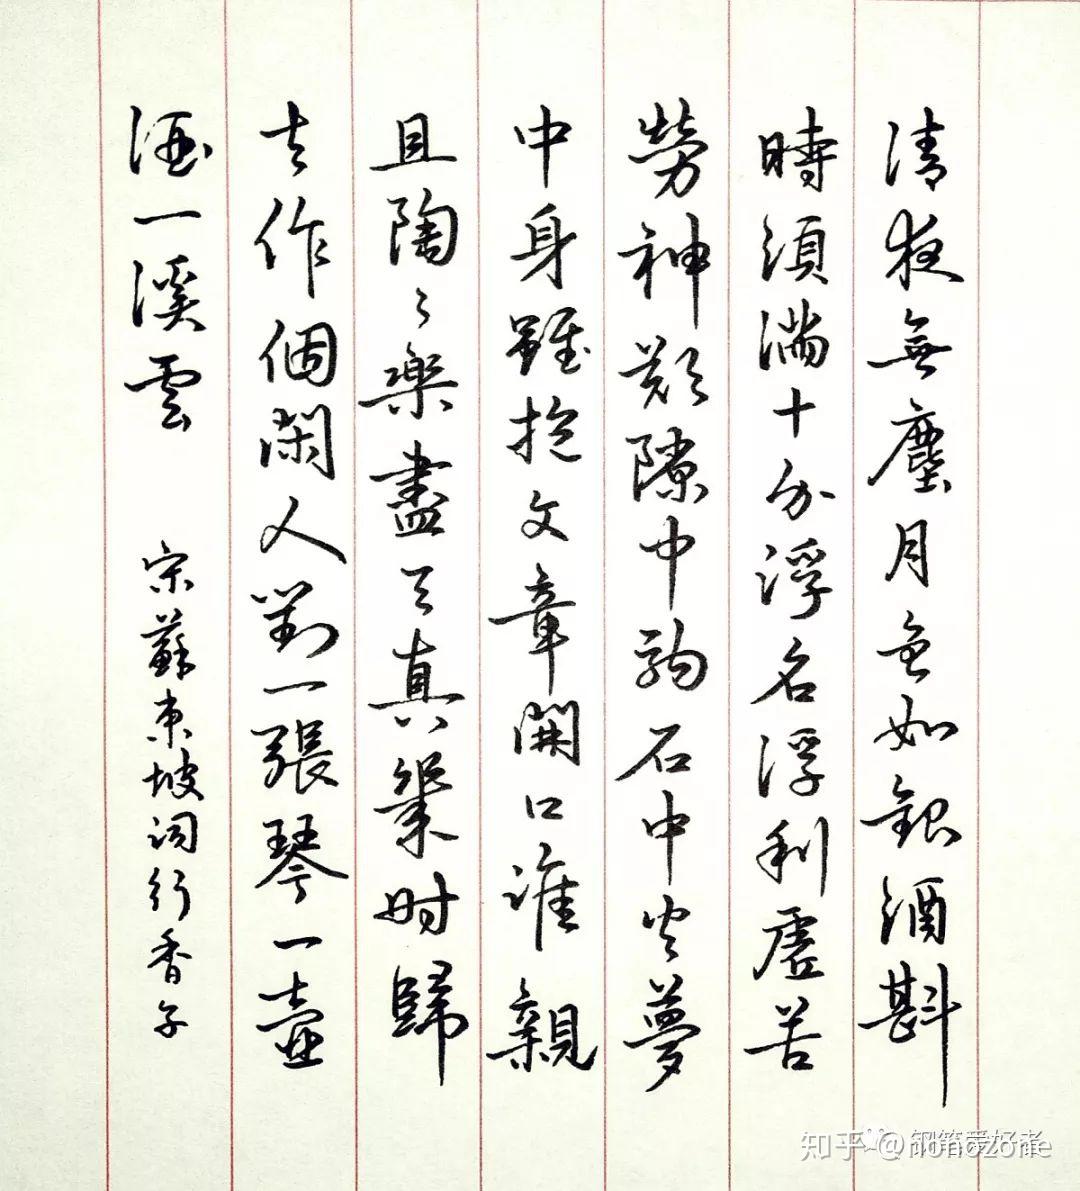 清夜無塵月色如銀酒斟
時須滿十分浮名浮利虛苦
勞神歎隙中駒石中火夢
中身雖抱文章開口誰親
且陶々樂盡天真幾时歸
去作個閑人對一張琴一壺
酒一溪雲 宋蘇東坡詞行香子
知乎 @nonozone
钢笔爱好者